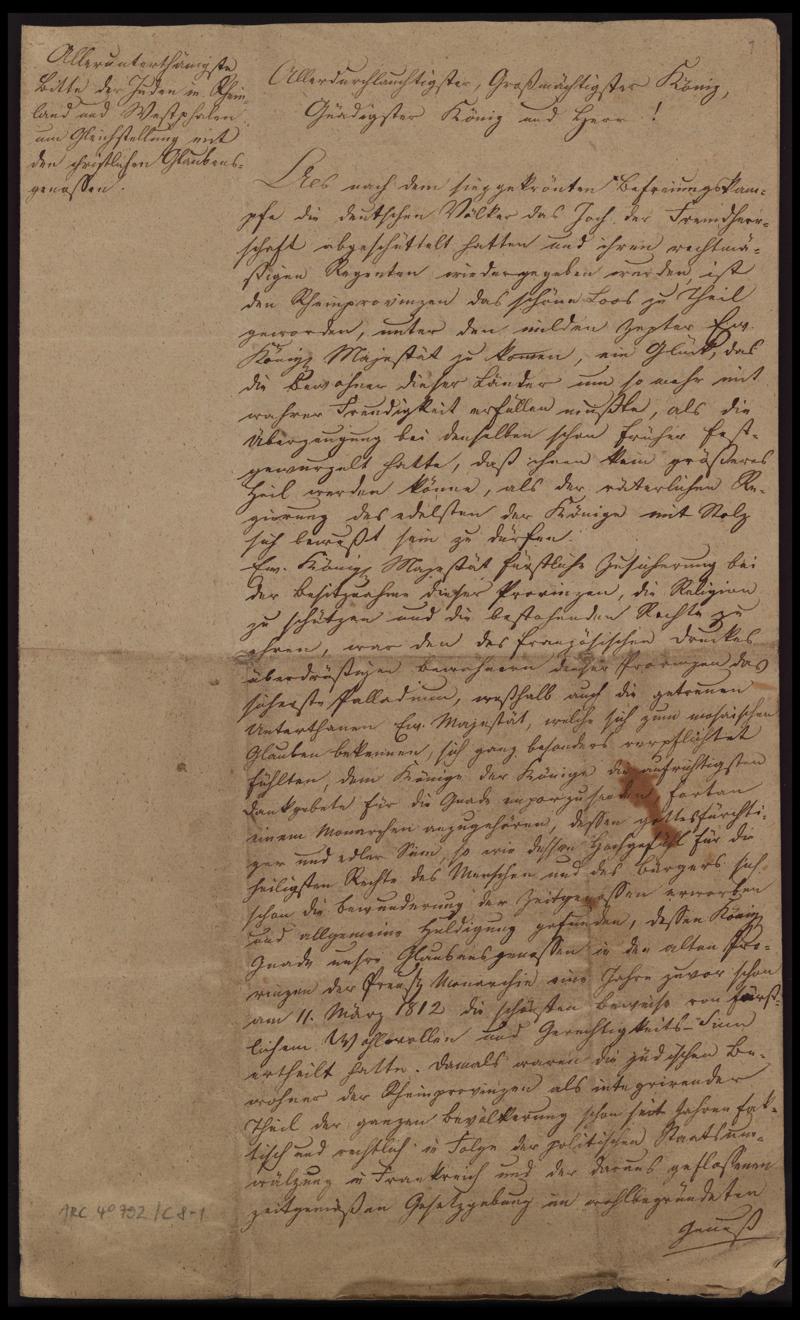 Allerunterthänigste
Bitte der Juden in Rhein-
land und Westphalen
um Gleichstellung mit
den christlichen Glaubens-
genossen.
Allerdurchlauchtigster, Großmächtigster König,
Gnädigster König und Herr!
Als nach dem sieggekrönten Befreiungskam-
pfe die deutschen Völker das Joch der Fremdherr-
schaft abgeschüttelt hatten und ihren rechtmä-
ßigen Regenten wiedergegeben worden, ist
den Rheinprovinzen das schöne Loos zu Theil
geworden, unter den milden Zepter Ew.
Königl Majestät zu kommen, ein Glück, das
die Bewohner dieser Länder um so mehr mit
wahrer Freudigkeit erfüllen mußte, als die
Überzeugung bei denselben schon früher fest-
gewurzelt hatte, daß ihnen kein größeres
Heil werden könne, als der väterlichen Re-
gierung des edelsten der Könige mit Stolz
sich bewußt sein zu dürfen.
Ew. Königl Majestät fürstliche Zusicherung bei
der Besitznahme dieser Provinzen, die Religion
zu schützen und die bestehenden Rechte zu
ehren, war den des französischen Druckes
überdrüßigen Bewohnern dieser Provinzen das
sicherste Palladium, weßhalb auch die getreuen
Unterthanen Ew. Majestät, welche sich zum mosaischen
Glauben bekennen, sich ganz besonders verpflichtet
fühlten, dem Könige der Könige die aufrichtigsten
Dankgebete für die Gnade emporzusenden, fortan
einem Monarchen anzugehören, dessen gottesfürchti-
ger und edler Sinn, so wie dessen Hochgefühl für die
heiligsten Rechte des Menschen und des Bürgers sich
schon die Bewunderung der Zeitgenossen erworben
und allgemeine Huldigung gefunden, dessen Königl
Gnade unsre Glaubensgenossen in den alten Pro-
vinzen der Preuß Monarchie eine Jahre zuvor schon
am 11. März 1812 die schönsten Beweise von fürst-
lichem Wohlwollen und Gerechtigkeits-Sinn
ertheilt hatte. Damals waren die jüdischen Be-
wohner der Rheinprovinzen als integrirender
Theil der ganzen Bevölkerung schon seit Jahren fak-
tisch und rechtlich in Folge der politischen Staatsum-
wälzung in Frankreich und der daraus geflossenen
zeitgemäßen Gesetzgebung im wohlbegründeten
Genuß
ARC 4° 792 / C 8-1